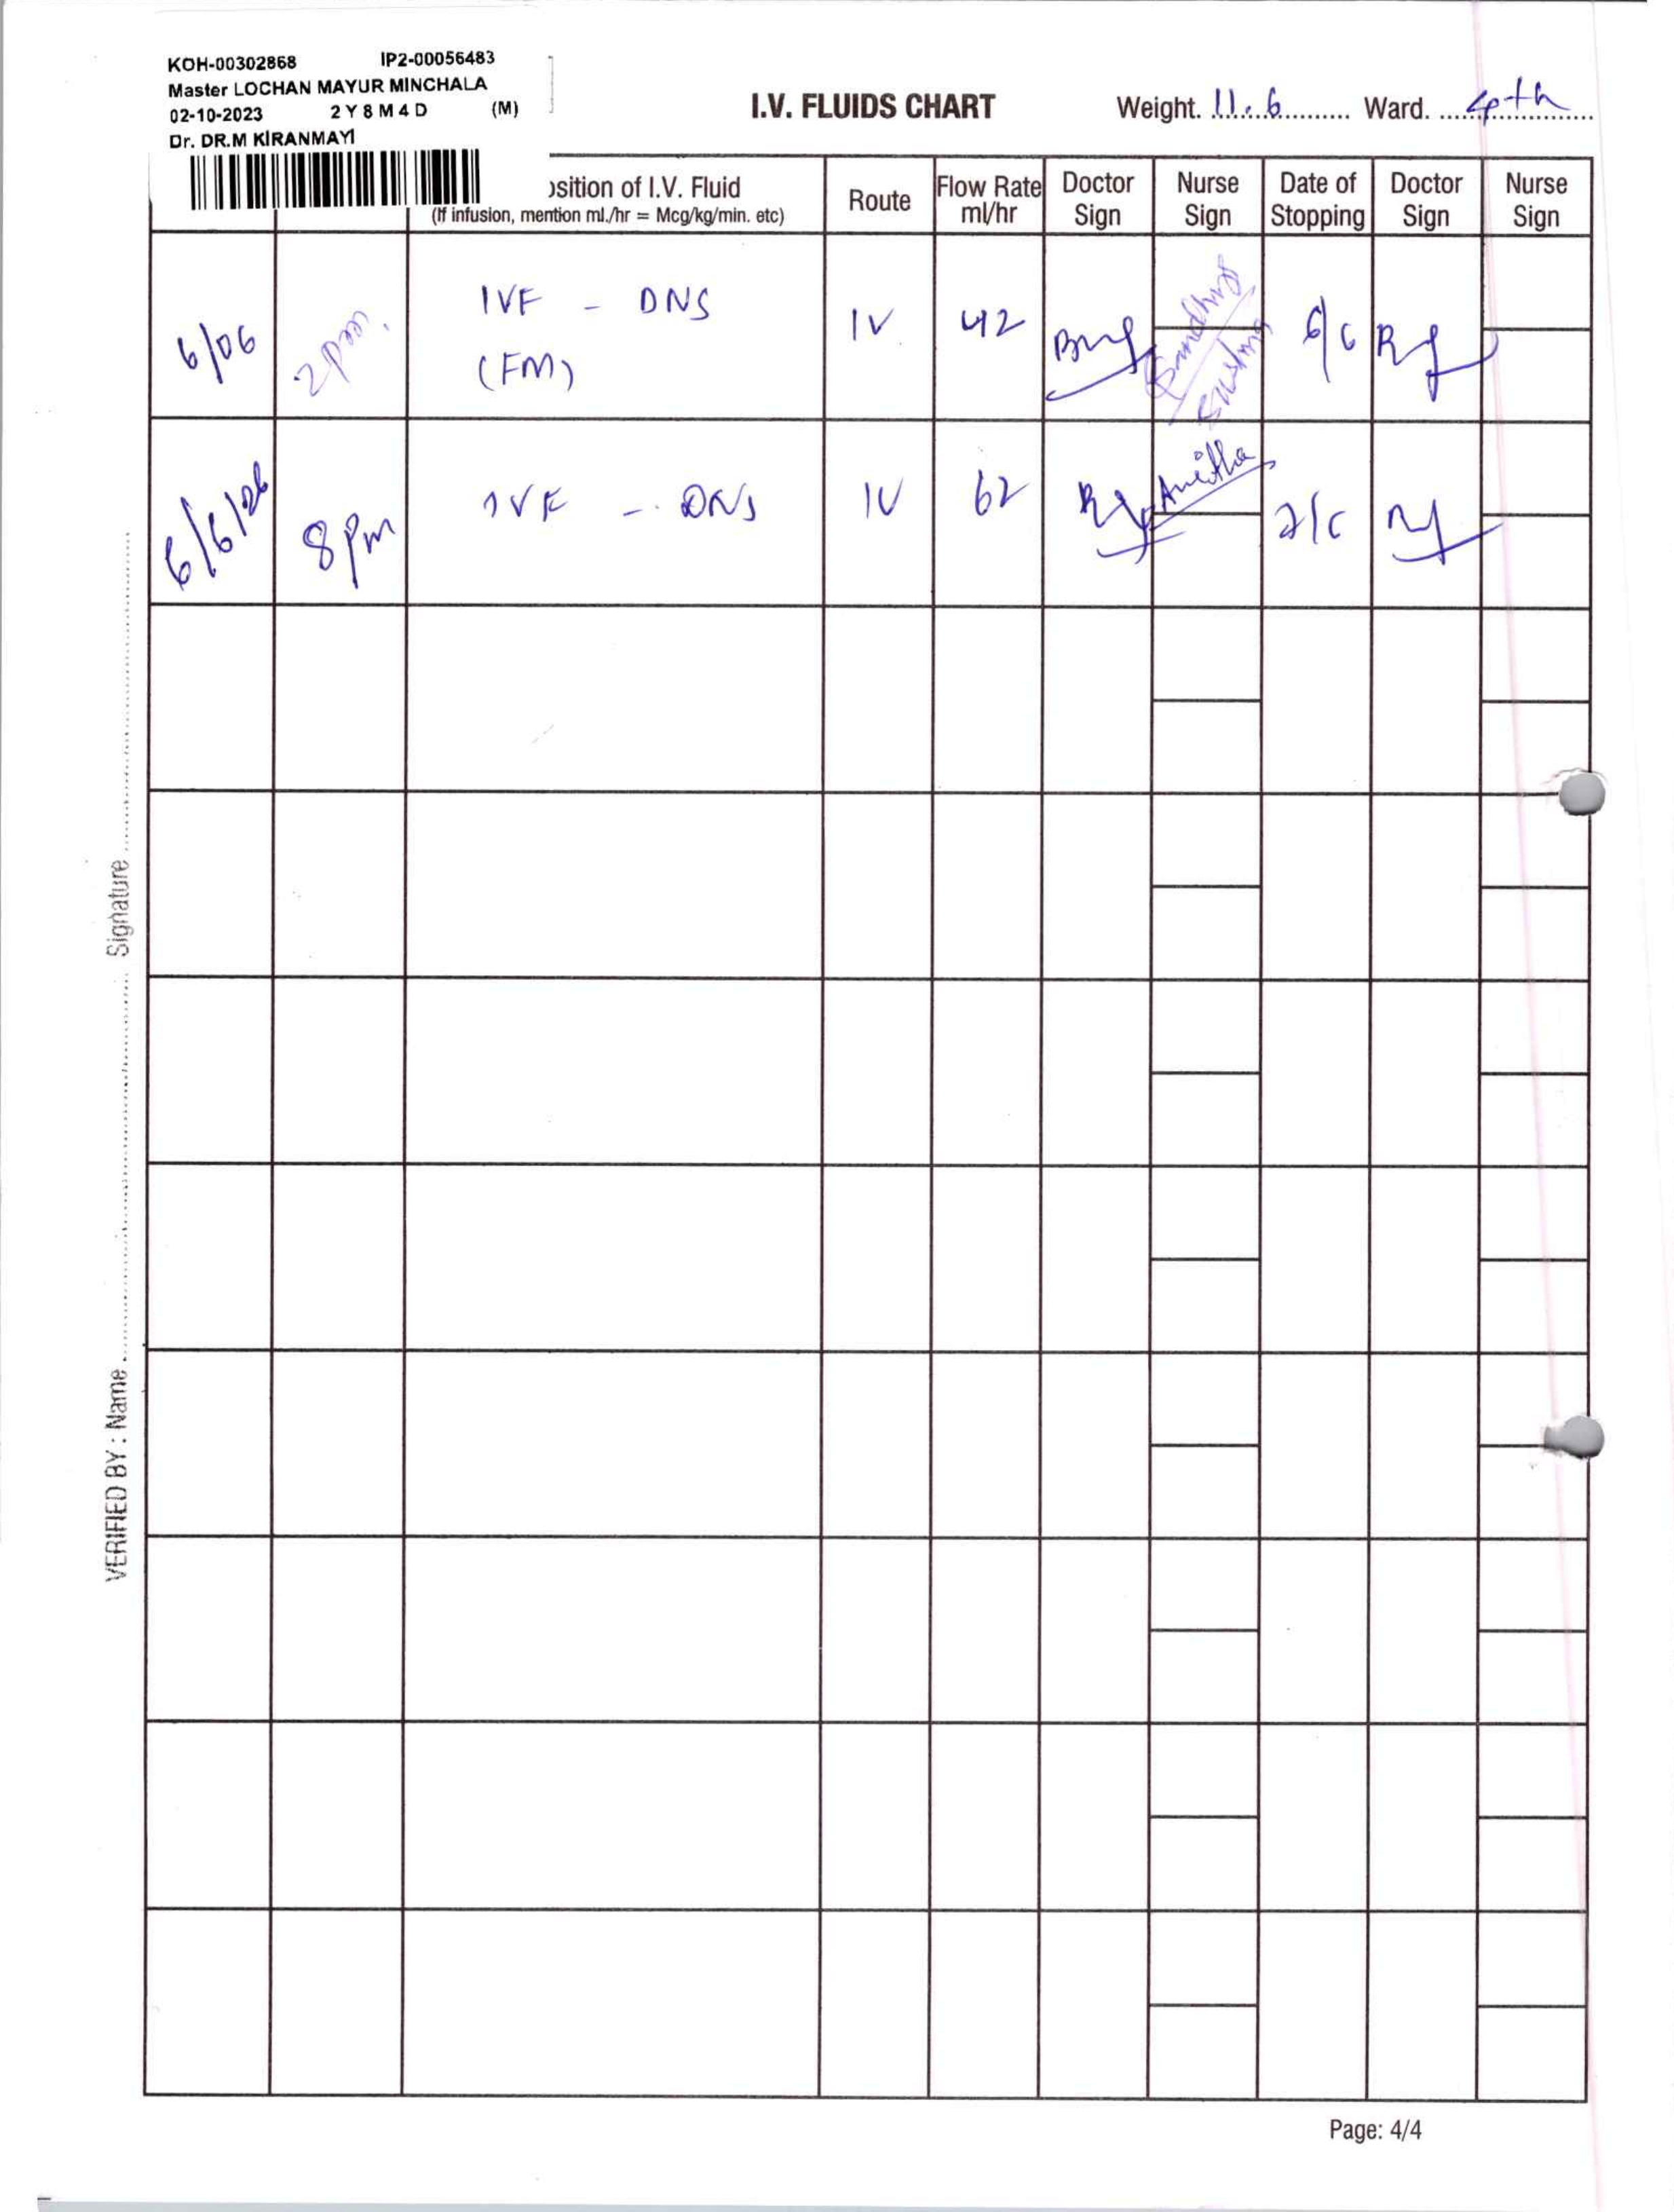 KOH-00302868 IP2-00056483
Master LOCHAN MAYUR MINCHALA
02-10-2023 2 Y 8 M 4 D (M)
Dr. DR.M KIRANMAYI
I.V. FLUIDS CHART Weight. 11.6 Ward. 4th
osition of I.V. Fluid
(If infusion, mention ml./hr = Mcg/kg/min. etc)
Route
Flow Rate ml/hr
Doctor Sign
Nurse Sign
Date of Stopping
Doctor Sign
Nurse Sign
6/06 2pm. IVF - DNS (FM) IV 42 6/6
6/6/26 8pm IVF - DNS IV 62 Anitha
VERIFIED BY : Name Signature
Page: 4/4